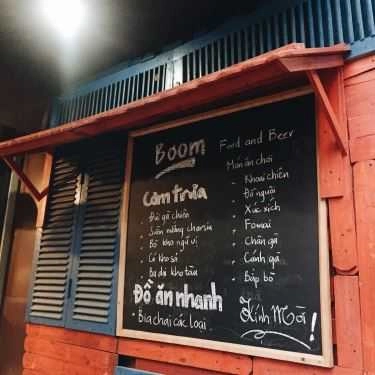 Boom Food and Beer
Cơm trưa
- Đùi gà chiên
- Sườn nướng charsiu
- Bò kho ngũ vị
- Cá kho tộ
- Ba chỉ kho tàu
Đồ ăn nhanh
- Bia chai các loại
Món ăn chơi
- Khoai chiên
- Đồ nguội
- Xúc xích
- Fomai
- Chân gà
- Cánh gà
- Bắp bò
Kính Mời!